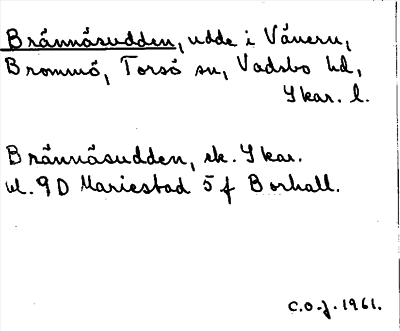 Brännäsudden, udde i Vänern,
Brommö, Torsö sn, Vadsbo hd,
Skar. l.
Brännäsudden, ek. Skar.
bl. 9D Mariestad 5 f Borhall.
C.O.J. 1961.